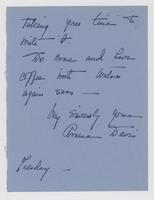 taking your time to
write it
Do come and have
coffee with
again soon —
My Sincerely yours
Davis
Tuesday —